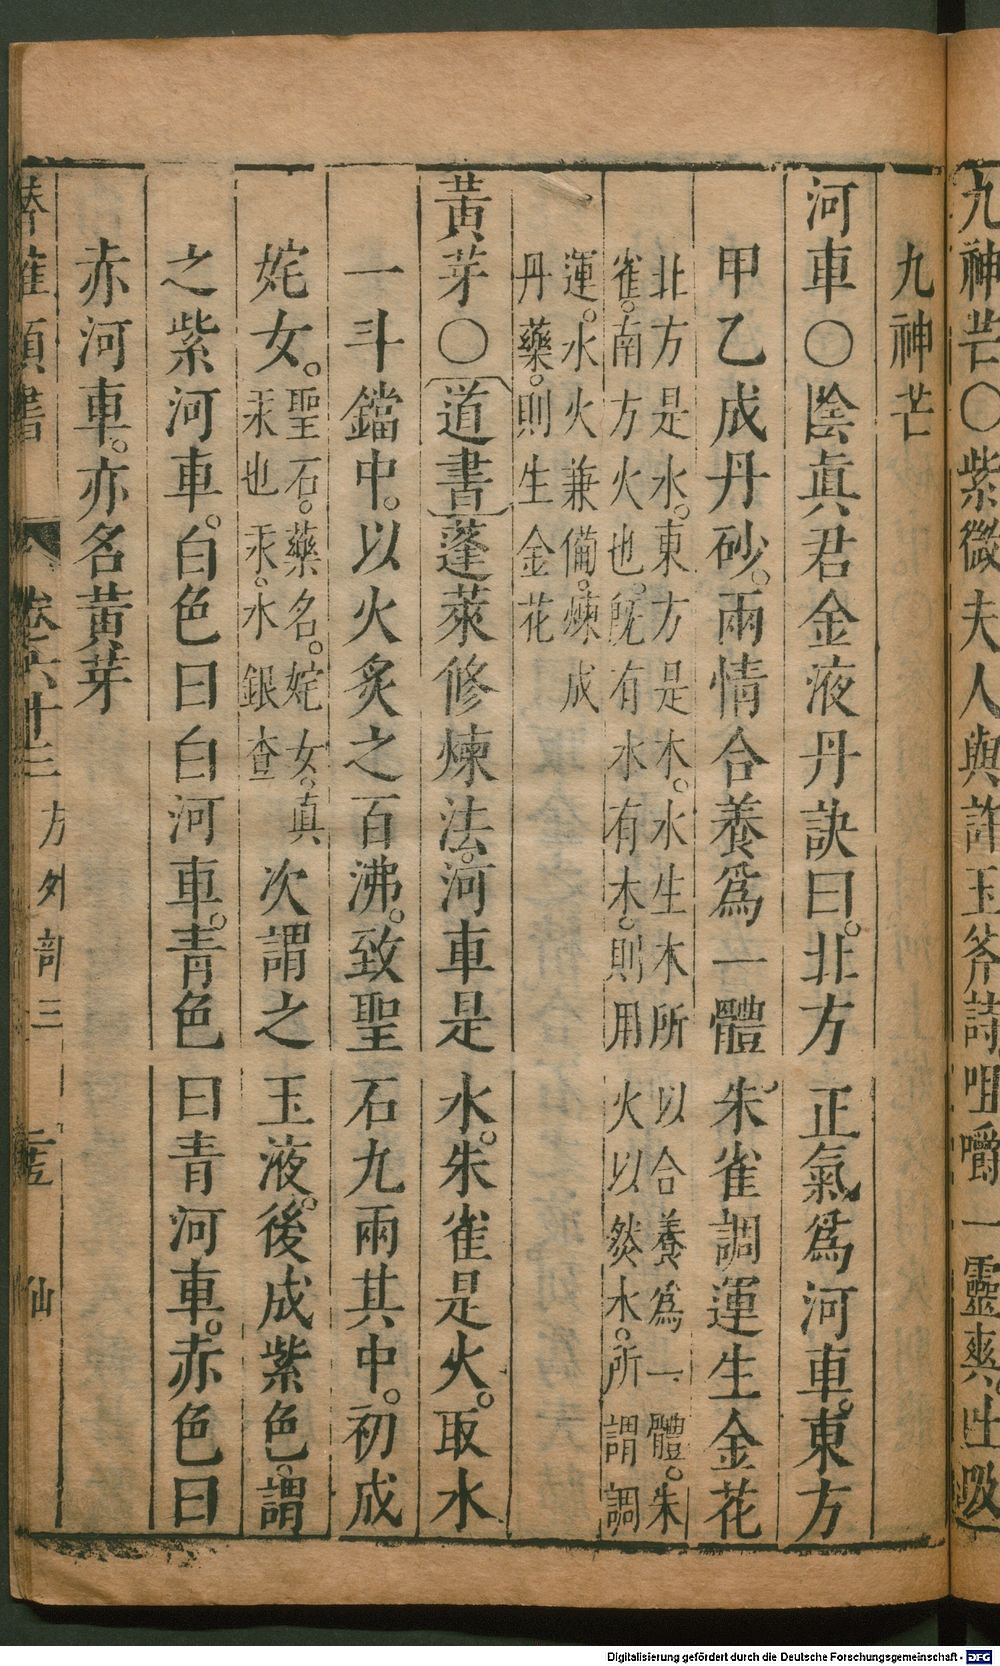 九神芒〇紫微夫人與許玉斧詩咀嚼一靈爽吐吸
九神芒
河車〇陰眞君金液丹訣曰。北方正氣爲河車。東方
甲乙成丹砂。兩情合養爲一體朱雀調運生金花
北方是水。東方是木。水生木所以合養爲一體。朱
雀。南方火也。旣有水有木。則用火以㷼水。所謂調
運。水火兼備。煉成
丹藥。則生金花
黃芽〇道書蓬萊修煉法。河車是水。朱雀是火。取水
一斗鐺中。以火炙之百沸。致聖石九兩其中。初成
姹女。聖石。藥名。姹女。真
汞也汞。水銀查
次謂之玉液。後成紫色。謂
之紫河車。白色曰白河車。青色曰青河車。赤色曰
赤河車。亦名黃芽
類書 卷六十三 方外部三 仙
Digitalisierung gefördert durch die Deutsche Forschungsgemeinschaft - DFG